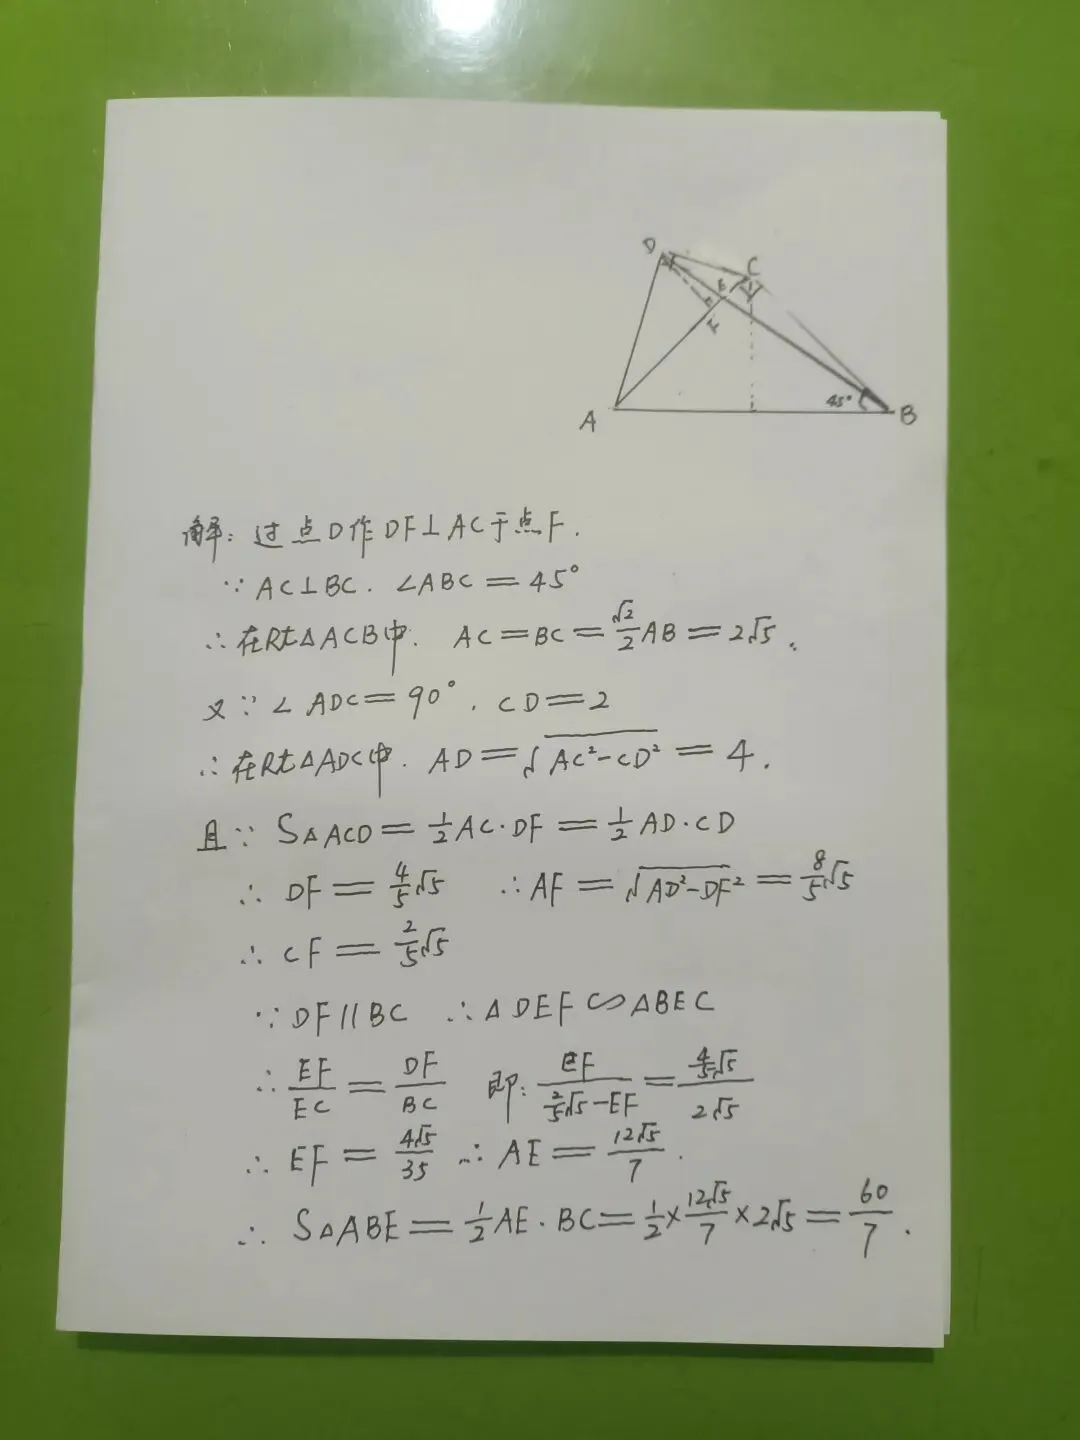 D
C
E
F
45°
A
B
解：过点D作DF⊥AC于点F.
∵ AC⊥BC. ∠ABC=45°
∴在Rt△ACB中. AC=BC=√2/2AB=2√5.
又∵∠ADC=90°. CD=2
∴在Rt△ADC中. AD=√(AC²-CD²)=4.
且∵ S△ACD=1/2AC·DF=1/2AD·CD
∴ DF=4/5√5 ∴AF=√(AD²-DF²)=8/5√5
∴ CF=2/5√5
∵DF∥BC ∴△DEF∽△BEC
∴EF/EC=DF/BC 即:EF/(2/5√5-EF)=(4/5√5)/(2√5)
∴ EF=4√5/35 ∴ AE=12√5/7.
∴ S△ABE=1/2AE·BC=1/2×12√5/7×2√5=60/7.